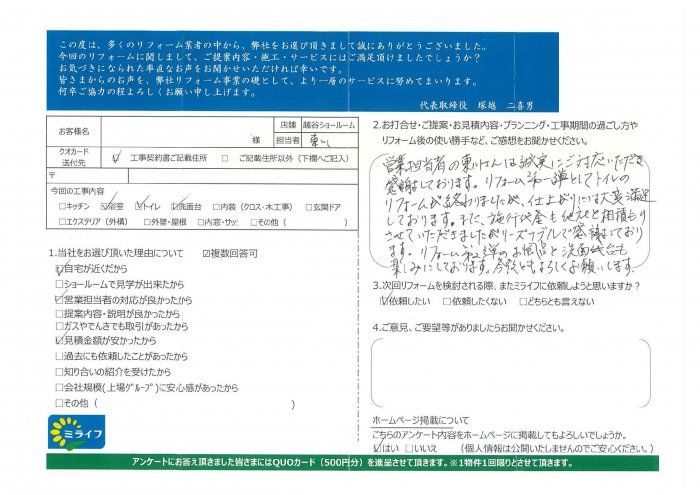 この度は、多くのリフォーム業者の中から、弊社をお選び頂きまして誠にありがとうございました。
今回のリフォームに関しまして、ご提案内容・施工・サービスにはご満足頂けましたでしょうか？
お気づきになられた率直なお声をお聞かせいただければ幸いです。
皆さまからのお声を、弊社リフォーム事業の礎として、より一層のサービスに努めてまいります。
何卒ご協力の程よろしくお願い申し上げます。
代表取締役 塚越 二喜男
お客様名
様
店舗 越谷ショールーム
担当者
クオカード
送付先
☑ 工事契約書ご記載住所 □ ご記載住所以外（下欄へご記入）
〒
今回の工事内容
□キッチン ☑浴室 ☑トイレ ☑洗面台 □内装（クロス・木工事） □玄関ドア
□エクステリア（外構） □外壁・屋根 □内窓・サッシ □その他（ ）
1.当社をお選び頂いた理由について ☑複数回答可
☑自宅が近だから
□ショールームで見学が出来たから
☑営業担当者の対応が良かったから
□提案内容・説明が良かったから
□ガスやでんきでも取引があったから
☑見積金額が安かったから
□過去にも依頼したことがあったから
□知り合いの紹介を受けたから
□会社規模(上場グループ)に安心感があったから
□その他（ ）
ミライフ
2.お打合せ・ご提案・お見積内容・プランニング・工事期間の過ごし方や
リフォーム後の使い勝手など、ご感想をお聞かせください。
営業担当者の東川さんは誠実にご対応いただき
感謝しております。リフォーム第一弾としてトイレの
リフォームが終わりましたが、仕上がりには大変満足
しております。また、施行代金も他社と相見もり
させていただきましたがリーズナブルで感謝しており
ます。リフォーム第2弾のお風呂と洗面化粧台も
楽しみにしております。今後ともよろしくお願いします。
3.次回リフォームを検討される際、またミライフに依頼しようと思いますか？
☑依頼したい □依頼したくない □どちらとも言えない
4.ご意見、ご要望等がありましたらお聞かせください。
ホームページ掲載について
こちらのアンケート内容をホームページに掲載してもよろしいでしょうか。
☑はい □いいえ （個人情報は公開いたしませんのでご安心ください。）
アンケートにお答え頂きました皆さまにはQUOカード（500円分）を進呈させて頂きます。※1物件1回限りとさせて頂きます。